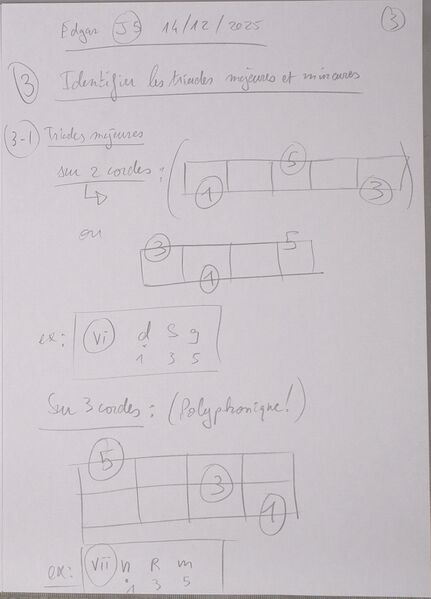 Edgar JS 14/12/2025
3
3 Identifier les triades majeures et mineures
3-1 Triades majeures
sur 2 cordes :
5
1 3
ou
3 5
1
ex: vi d S g
1 3 5
Sur 3 cordes : (Polyphonique!)
5
3
1
ex: vii n R m
1 3 5